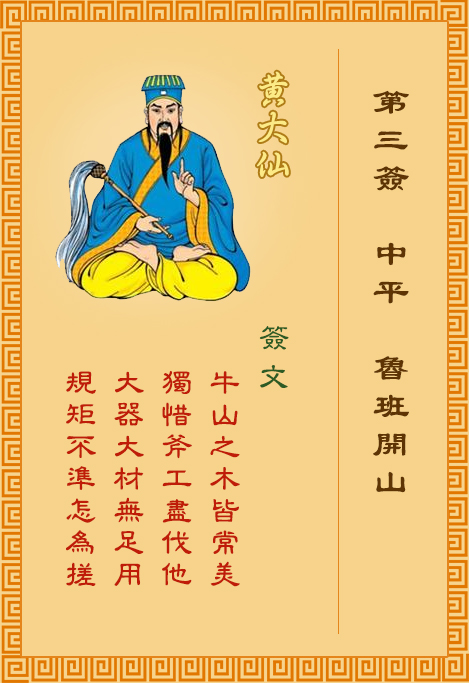 第三簽 中平 魯班開山
黃大仙
簽文
牛山之木皆常美
獨惜斧工盡伐他
大器大材無足用
規矩不準怎為搓